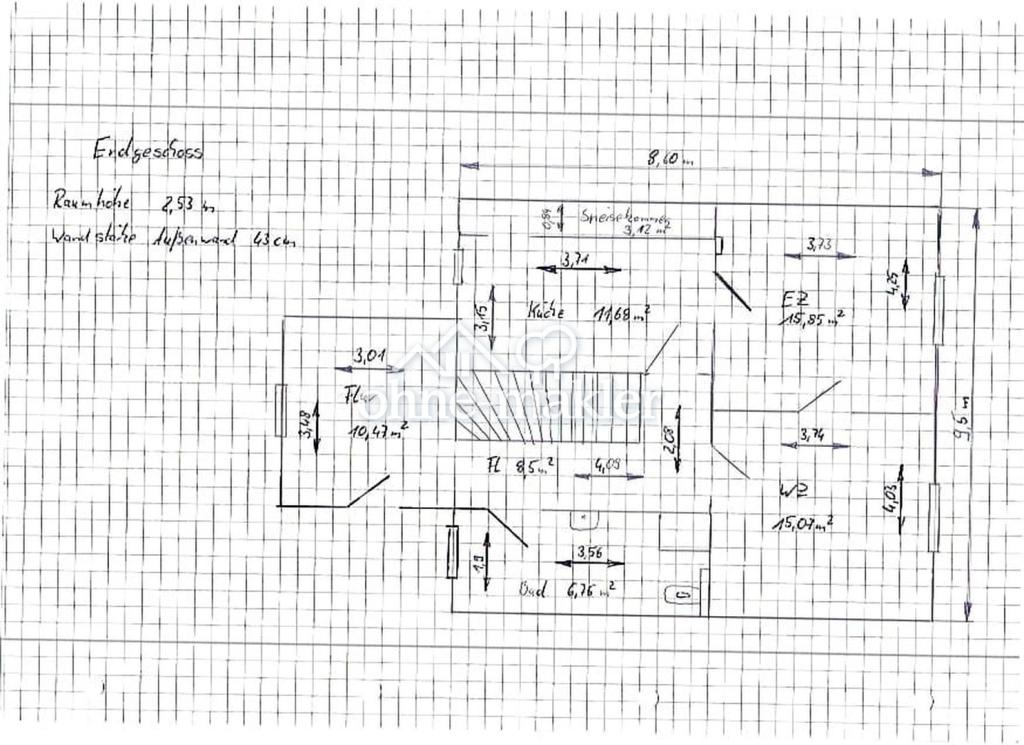 Erdgeschoss
Raumhöhe 2,53 m
Wandstärke Außenwand 43 cm
8,60 m
0,84
Speisekammer
3,12 m²
3,71
3,73
4,25
Küche 11,68 m²
3,15
EZ
15,85 m²
3,01
Flur
10,47 m²
3,48
ohne-makler
9,5 m
2,08
3,74
Fl 8,5 m²
4,09
WZ
15,07 m²
4,03
3,56
1,9
Bad 6,76 m²